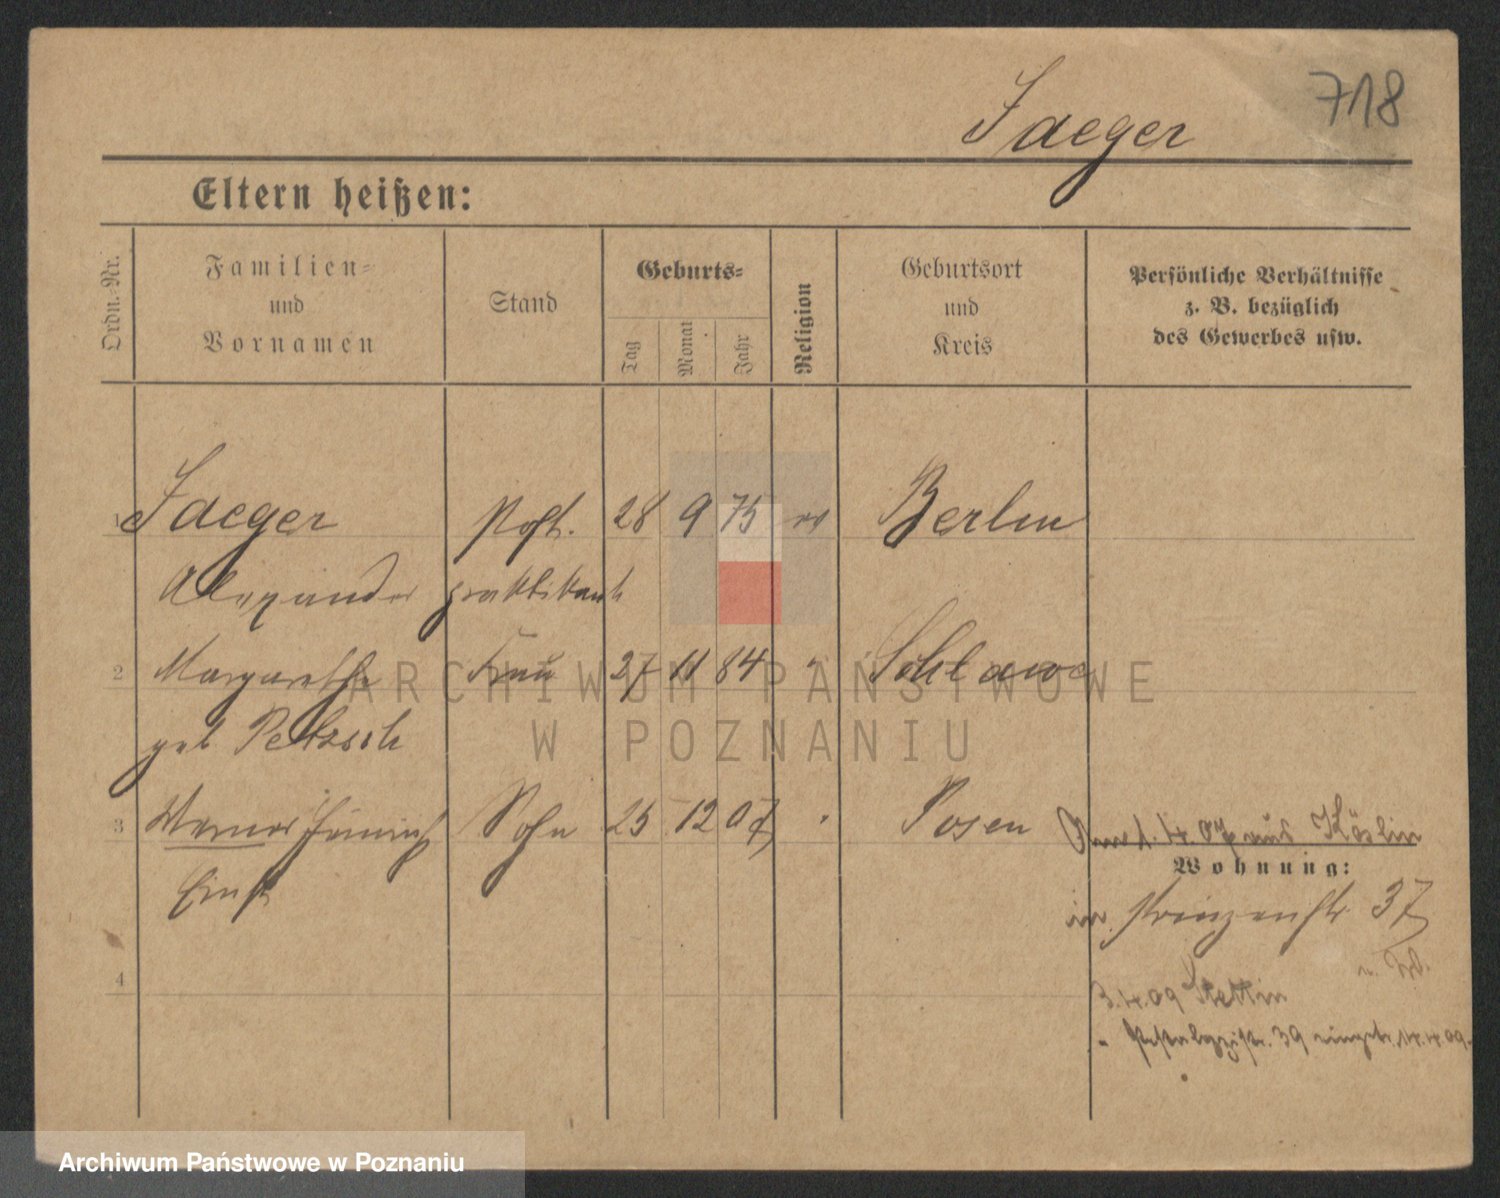 718
Jaeger
Eltern heißen:
Ordn.-Nr.
Familien-
und
Vornamen
Stand
Geburts-
Tag
Monat
Jahr
Religion
Geburtsort
und
Kreis
Persönliche Verhältnisse
z. B. bezüglich
des Gewerbes usw.
1 Jaeger Post. 28 9 75 ev Berlin
Alexander praktikant
2 Margarethe Frau 27 11 84 " Schlawe
geb Petzsch
3 Werner Heinrich Sohn 25 12 07 " Posen
4. 07 aus Köslin
Wohnung:
Ernst
in Prinzenstr 37
4
3.4.09 Stettin
" Pestalozzistr. 39 eingetr. 14.4.09.
ARCHIWUM PAŃSTWOWE
W POZNANIU
Archiwum Państwowe w Poznaniu